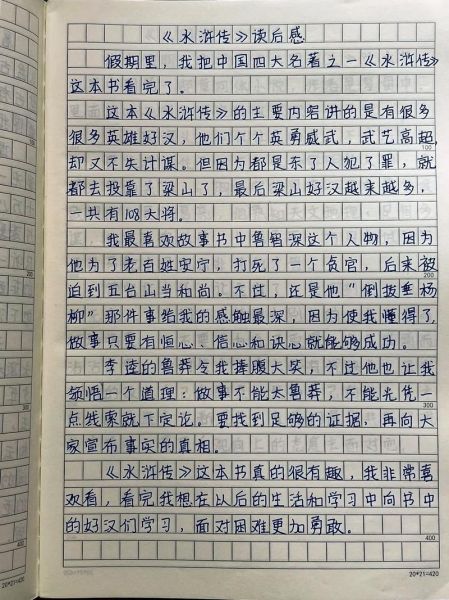 《水浒传》读后感
假期里，我把中国四大名著之一《水浒传》
这本书看完了。
这本《水浒传》的主要内容讲的是有很多
很多英雄好汉，他们个个英勇威武，武艺高超，
却又不失计谋。但因为都是杀了人犯了罪，就
都去投靠了梁山了，最后梁山好汉越来越多，
一共有108大将。
我最喜欢故事书中鲁智深这个人物，因为
他为了老百姓安宁，打死了一个贪官，后来被
迫到五台山当和尚。不过，还是他“倒拔垂杨
柳”那件事给我的感触最深，因为使我懂得了，
做事只要有恒心、信心和决心就能够成功。
李逵的鲁莽令我捧腹大笑，不过他也让我
领悟一个道理：做事不能太鲁莽，不能光凭一
点线索就下定论。要找到足够的证据，再向大
家宣布事实的真相。
《水浒传》这本书真的很有趣，我非常喜
欢看，看完我想在以后的生活和学习中向书中
的好汉们学习，面对困难更加勇敢。
100
200
300
400
20*21=420
400
20*21=420